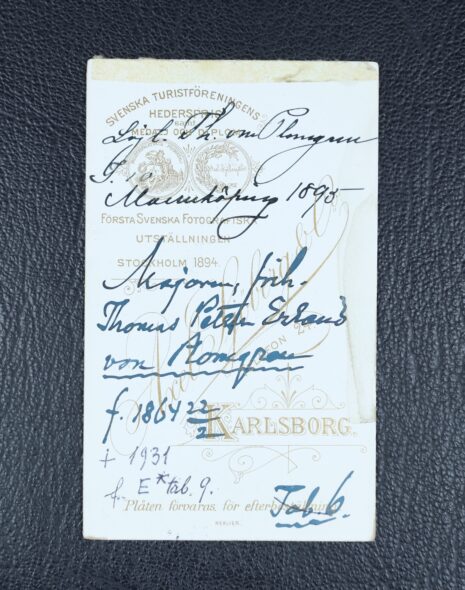 SVENSKA TURISTFÖRENINGENS
HEDERSPRIS
samt
MEDALJ OCH DIPLOM
Löjt. Th. von
1895
FÖRSTA SVENSKA FOTOGRAFISKA
UTSTÄLLNINGEN
STOCKHOLM 1894.
Majoren, frih.
Thomas Peter Erland
von
TELEFON
f. 1864 22/2
KARLSBORG.
+ 1931
f. E* tab. 9.
Tab. 6.
Plåten förvaras för efterbeställning